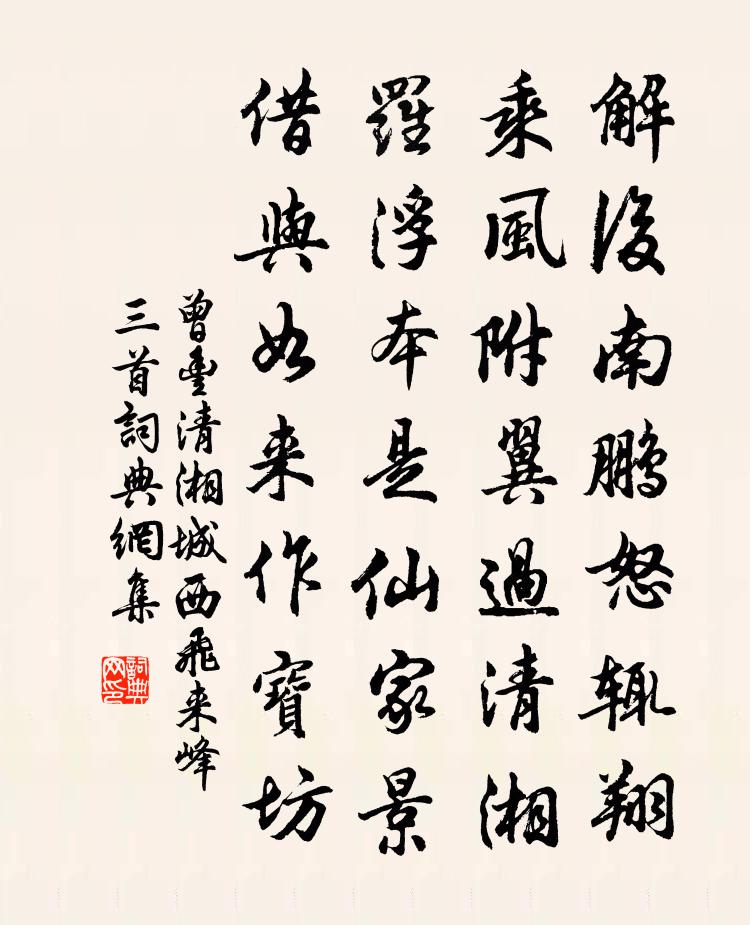 解後南鵬怒辄翔
乘風附翼過清湘
羅浮本是仙家景
借與如来作寶坊
曾豊清湘城西飛来峰
三首詞典網集
詞典网印